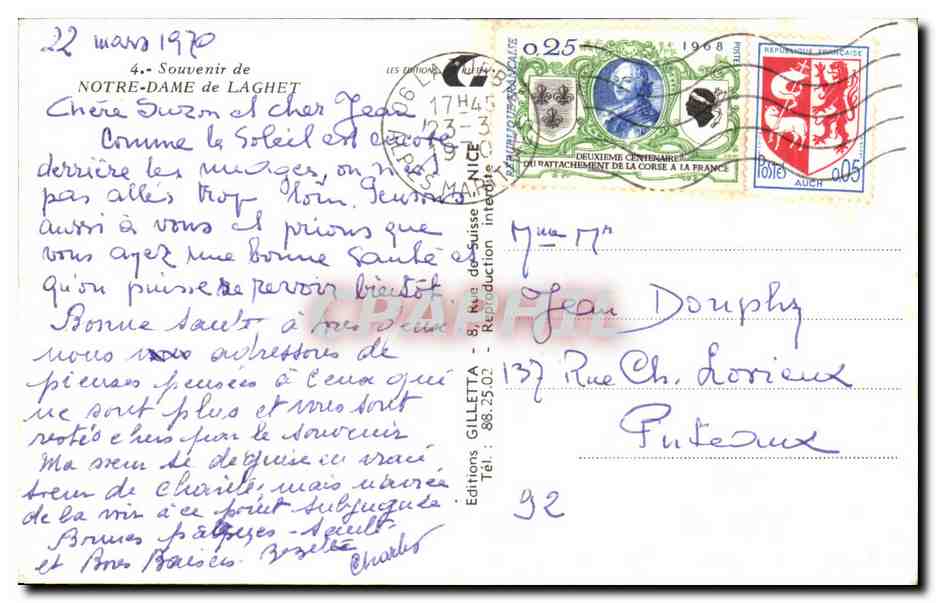 22 mars 1970
4.- Souvenir de
NOTRE-DAME de LAGHET
Chère Suzon et cher Jean
Comme le Soleil est encore
derrière les nuages, on n'est
pas allés trop loin. Pensons
aussi à vous et prions que
vous ayez une bonne santé et
qu'on puisse se revoir bientôt
Bonne santé, à vous deux
nous vous adressons de
pieuses pensées à ceux qui
ne sont plus et vous sont
restés chers par le souvenir
Ma sœur se déguise en vraie
sœur de charité, mais
de la voir à ce point subjuguée.
Bonnes pâques - santé
et Bons Baisers.
Charles
LES EDITIONS GILLETTA
17H45
23-3
1970
ALPES MARIT
Editions GILLETTA - 8, Rue de Suisse - NICE
Tél. : 88.25.02 - Reproduction interdite
REPUBLIQUE FRANÇAISE
0,25
1968
POSTES
DEUXIEME CENTENAIRE
DU RATTACHEMENT DE LA CORSE A LA FRANCE
REPUBLIQUE FRANÇAISE
POSTES
0,05
AUCH
Mme Mr
Jean Douphy
137 Rue Ch. Lorieux
Puteaux
92
CPAPHIL